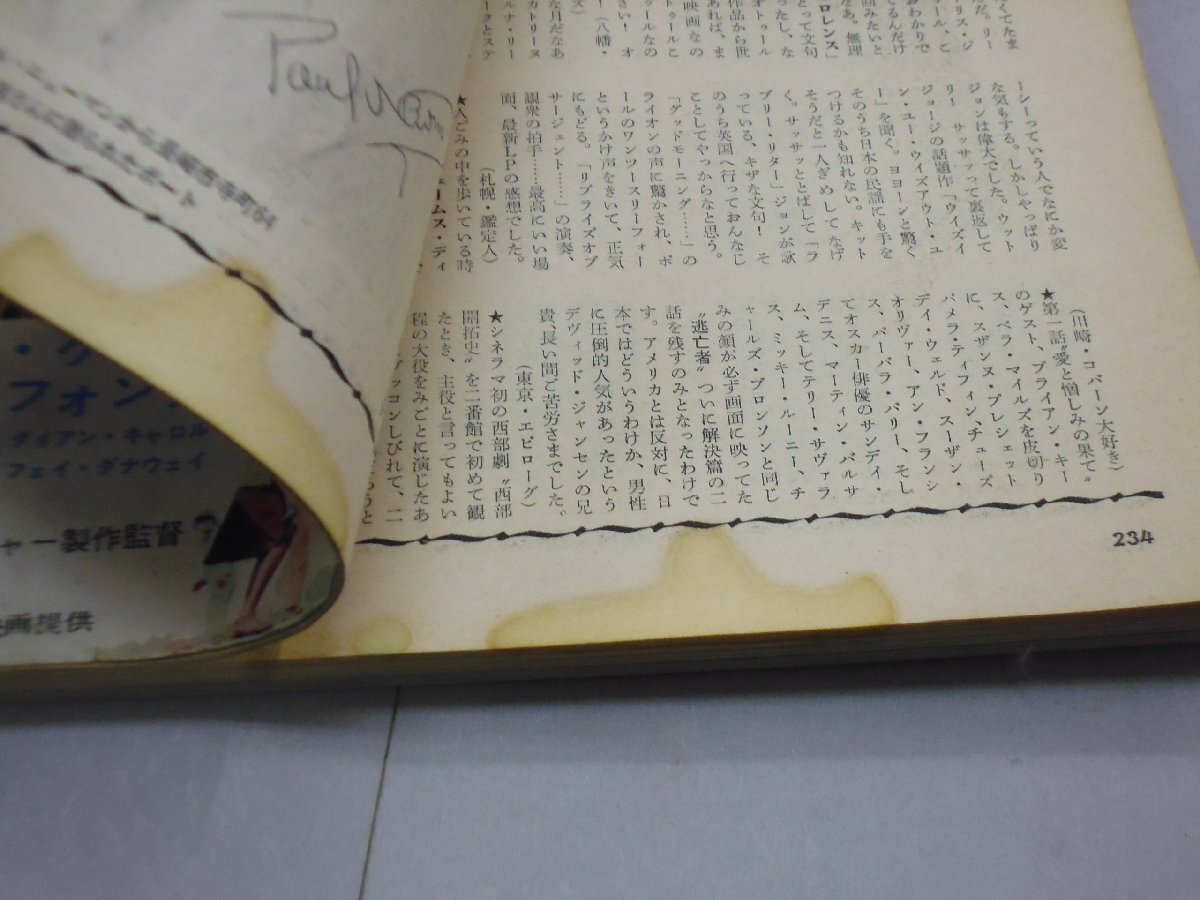 くてたま
だ。リー
リス・ジ
ール、こ
おわかりで
てるんだけ
面みたいと
なあ。無理
ロレンス」
とって文句
ったし、な
オトゥール
作品から世
あれば、ま
映画なの
トゥールこ
ゥールなの
さい！　オ
！（八幡・
ズ）
な月だなあ
カトリーヌ
ルナ・リー
ークとステ
ーシーっていう人でなにか変
な気もする。しかしやっぱり
ジョンは偉大でした。ウット
リ！　サッサッって裏返して
ジョージの話題作「ウィズイ
ン・ユー・ウィズアウト・ユ
ー」を聞く。ヨヨーンと驚く
そのうち日本の民謡にも手を
つけるかも知れない。キット
そうだと一人ぎめしてなげ
く。サッサッととばして「ラ
ブリー・リタ」ジョンが歌
っている、キザな文句！　そ
のうち英国へ行っておんなじ
ことしてやっからなと思う。
「グッドモーニング……」の
ライオンの声に驚かされ、ポ
ールのワンツースリーフォー
というかけ声をきいて、正気
にもどる。「リプライズオブ
サージェント……」の演奏、
観衆の拍手……最高にいい場
面、最新ＬＰの感想でした。
（札幌・鑑定人）
ェームス・ディ
★人ごみの中を歩いている時
（川崎・コバーン大好き）
★第一話“愛と憎しみの果て”
のゲスト、ブライアン・キー
ス、ベラ・マイルズを皮切り
に、スザンヌ・プレシェット
パメラ・ティフィン、チューズ
デイ・ウェルド、スーザン・
オリヴァー、アン・フランシ
ス、バーバラ・バリー、そし
てオスカー俳優のサンディ・
デニス、マーティン・バルサ
ム、そしてテリー・サヴァラ
ス、ミッキー・ルーニー、チ
ャールズ・ブロンソンと同じ
みの顔が必ず画面に映ってた
“逃亡者”ついに解決篇の二
話を残すのみとなったわけで
す。アメリカとは反対に、日
本ではどういうわけか、男性
に圧倒的人気があったという
デヴィッド・ジャンセンの兄
貴、長い間ご苦労さまでした。
（東京・エピローグ）
★シネラマ初の西部劇“西部
開拓史”を二番館で初めて観
たとき、主役と言ってもよい
程の大役をみごとに演じたあ
グッコンしびれて、二
234
フォン
ダイアン・キャロル
フェイ・ダナウェイ
ャー製作監督
画提供